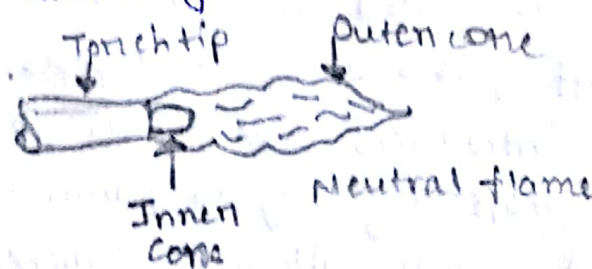 Torich tip
Outer cone
Inner
Cone
Neutral flame